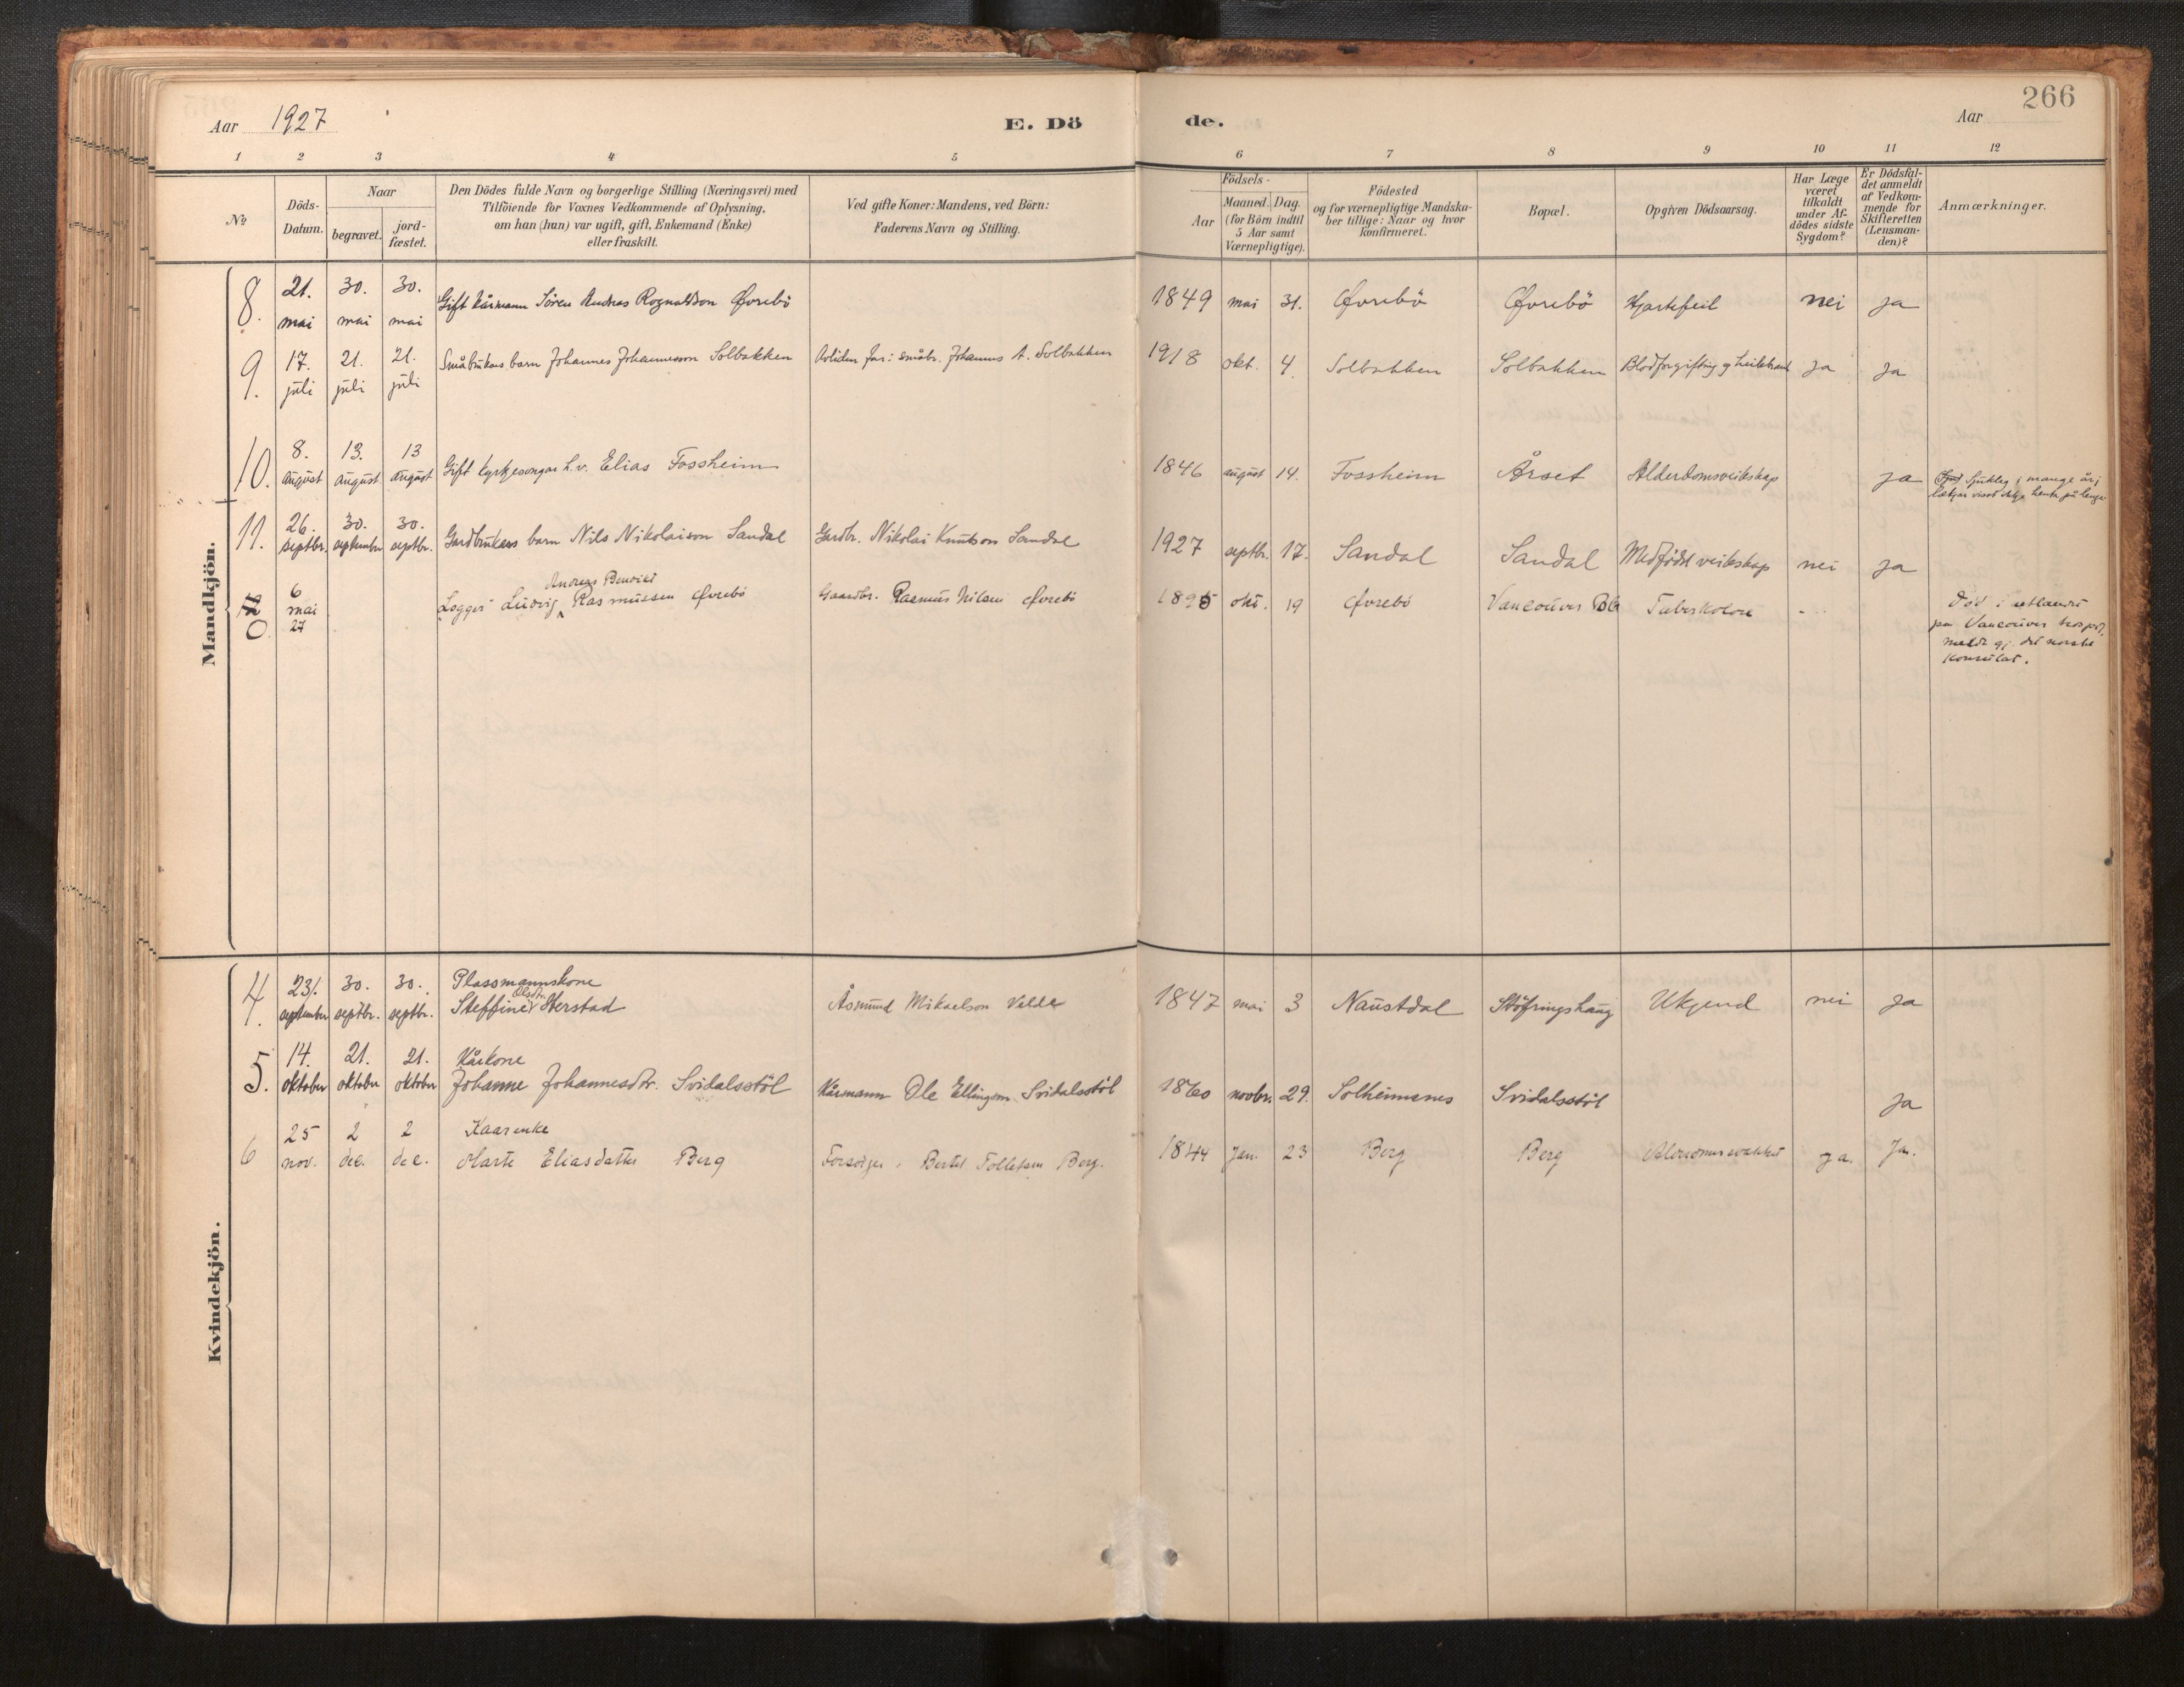 266
Aar 1927
E. Dö
de.
Aar
1 2 3 4 5 6 7 8 9 10 11 12
No
Döds-
Datum.
Naar
begravet.
jord-
fæstet.
Den Dödes fulde Navn og borgerlige Stilling (Næringsvei) med
Tilföiende for Voxnes Vedkommende af Oplysning,
om han (hun) var ugift, gift, Enkemand (Enke)
eller fraskilt.
Ved gifte Koner: Mandens, ved Börn:
Faderens Navn og Stilling.
Födsels-
Aar
Maaned. Dag.
(for Börn indtil
5 Aar samt
Værnepligtige).
Födested
og for værnepligtige Mandska-
ber tillige: Naar og hvor
konfirmeret.
Bopæl.
Opgiven Dödsaarsag.
Har Læge
været
tilkaldt
under Af-
dödes sidste
Sygdom?
Er Dödsfal-
det anmeldt
af Vedkom-
mende for
Skifteretten
(Lensman-
den)?
Anmærkninger.
Mandkjön.
8. 21. mai 30. mai 30. mai Gift kårmann Sören Andreas Rognaldson Øvrebö 1849 mai 31. Øvrebö Øvrebö Hjartefeil nei ja
9. 17. juli 21. juli 21. juli Småbrukars barn Johannes Johannesson Solbakken Avliden far: småbr. Johannes A. Solbakken 1918 okt. 4. Solbakken Solbakken Blodforgiftning og ja ja
10. 8. august 13. august 13 august Gift kyrkjesongar h.v. Elias Fossheim 1846 august 14. Fossheim Årset Alderdomsveikskap ja
Sjukleg i mange år;
11. 26. septbr. 30. septembr 30. septbr. Gardbrukars barn Nils Nikolaison Sandal Gardbr. Nikolai Knutson Sandal 1927 septbr. 17. Sandal Sandal Medfödt veikskap nei ja
Andreas Benedikt
0 6 mai 27 Logger Ludvig Rasmussen Øvrebö Gaardbr. Rasmus Nilsen Øvrebö 1895 okt. 19 Øvrebö Vancouver Tuberkolose -
Död i utlandet
paa Vancouver hospit.
meldt gj. det norske
Konsulat.
Kvindekjön.
4. 23/. september 30. septbr. 30. septbr. Plassmannskone
Steffine Olsdtr. Herstad Åsmund Mikaelson Velde 1847 mai 3 Naustdal Stöfringshaug Ukjend nei ja
5. 14. oktober 21. oktober 21. oktober Kårkone
Johanne Johannesdtr. Svidalsstöl Kårmann Ole Ellingson Svidalsstöl 1860 novbr. 29. Solheimsnes Svidalsstöl ja
6 25 nov. 2 dec. 2 dec. Kaarenke
Marte Eliasdatter Berg Forsörger: Bertel Tollefsen Berg. 1844 Jan. 23 Berg Berg ja. Ja.